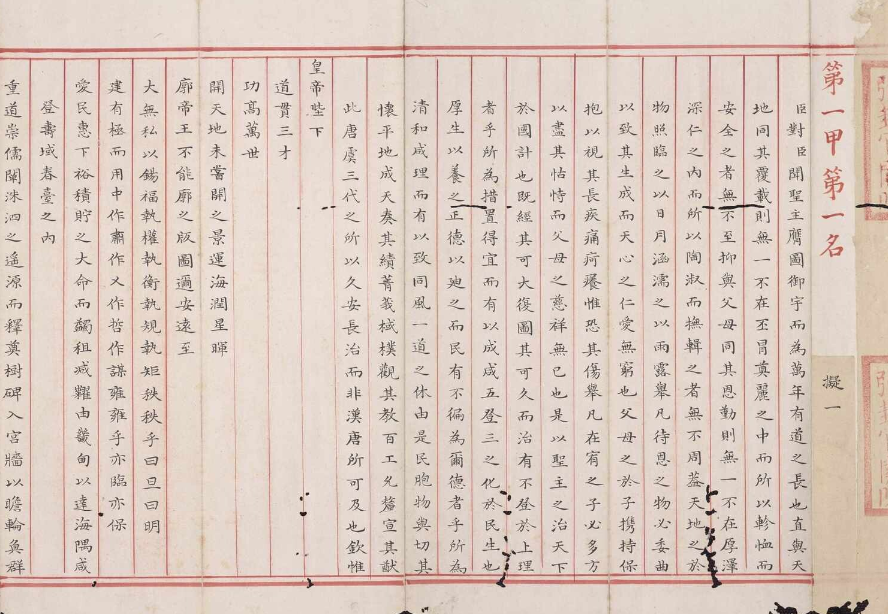 第一甲第一名
擬一
臣對臣聞聖主膺圖御宇而為萬年有道之長也直與天
地同其覆載則無一不在丕冒奠麗之中而所以軫恤而
安全之者無不至抑與父母同其恩勤則無一不在厚澤
深仁之內而所以陶淑而撫輯之者無不周葢天地之於
物照臨之以日月涵濡之以雨露舉凡待恩之物必委曲
以致其生成而天心之仁愛無窮也父母之於子携持保
抱以視其長疾痛疴癢惟恐其傷舉凡在宥之子必多方
以盡其怙恃而父母之慈祥無已也是以聖主之治天下
於國計也既經其可大復圖其可久而治有不登於上理
者乎所為措置得宜而有以成咸五登三之化於民生也
厚生以養之正德以廸之而民有不徧為爾德者乎所為
清和咸理而有以致同風一道之休由是民胞物與切其
懷平地成天奏其績菁莪棫樸觀其教百工允釐宣其猷
此唐虞三代之所以久安長治而非漢唐所可及也欽惟
皇帝陛下
道貫三才
功高萬世
開天地未嘗開之景運海潤星暉
廓帝王不能廓之版圖邇安遠至
大無私以錫福執權執衡執規執矩秩秩乎曰旦曰明
建有極而用中作肅作乂作哲作謀雍雍乎亦臨亦保
愛民惠下裕積貯之大命而蠲租減糶由畿甸以遠海隅咸
登壽域春臺之內
重道崇儒闡洙泗之遙源而釋奠樹碑入宮牆以瞻輪奐群